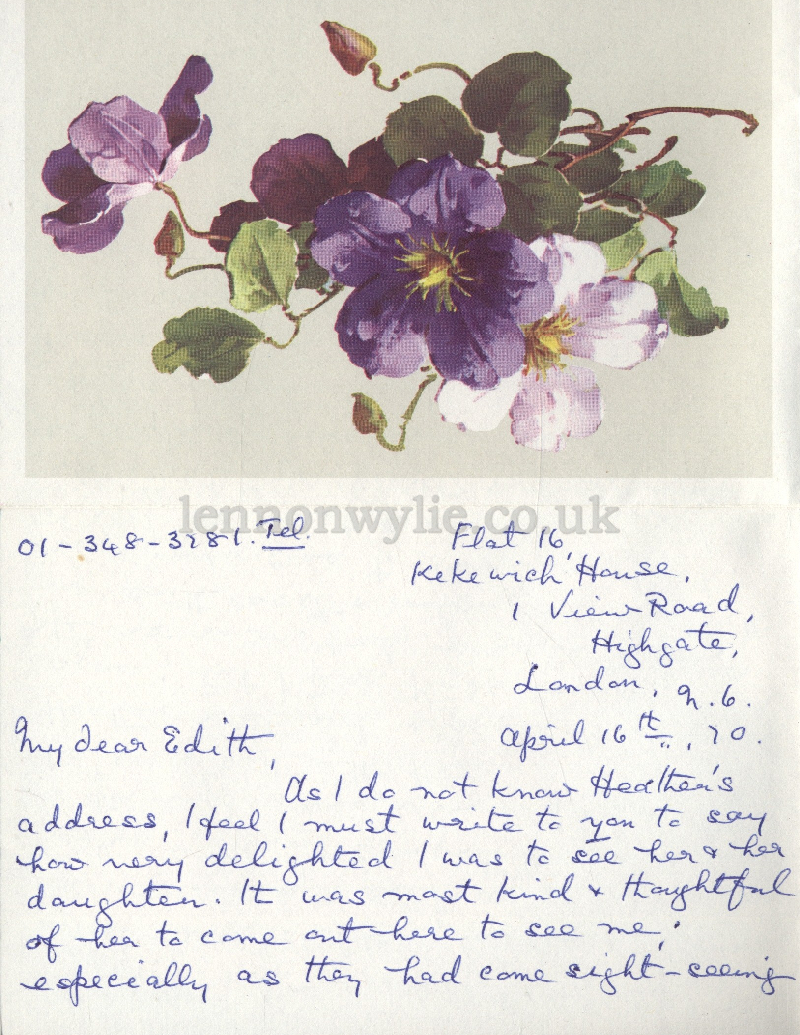 lennonwylie.co.uk
01-348-3281. Tel.
Flat 16,
Kekewich House,
1 View Road,
Highgate,
London, N.6.
April 16th, 70.
My dear Edith,
As I do not know Heather's
address, I feel I must write to you to say
how very delighted I was to see her & her
daughter. It was most kind & thoughtful
of her to come out here to see me;
especially as they had come sight-seeing